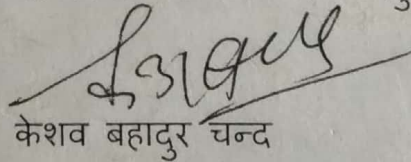 केशव बहादुर चन्द